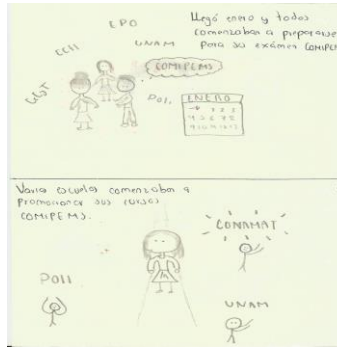 EPO
Llegó enero y todos
comenzaban a prepararse
para su exámen COMIPEMS
CCH
UNAM
COMIPEMS
Poli.
ENERO
1 2 3
Varias escuelas comenzaban a
promocionar sus cursos
COMIPEMS.
CONAMAT
Poli
UNAM